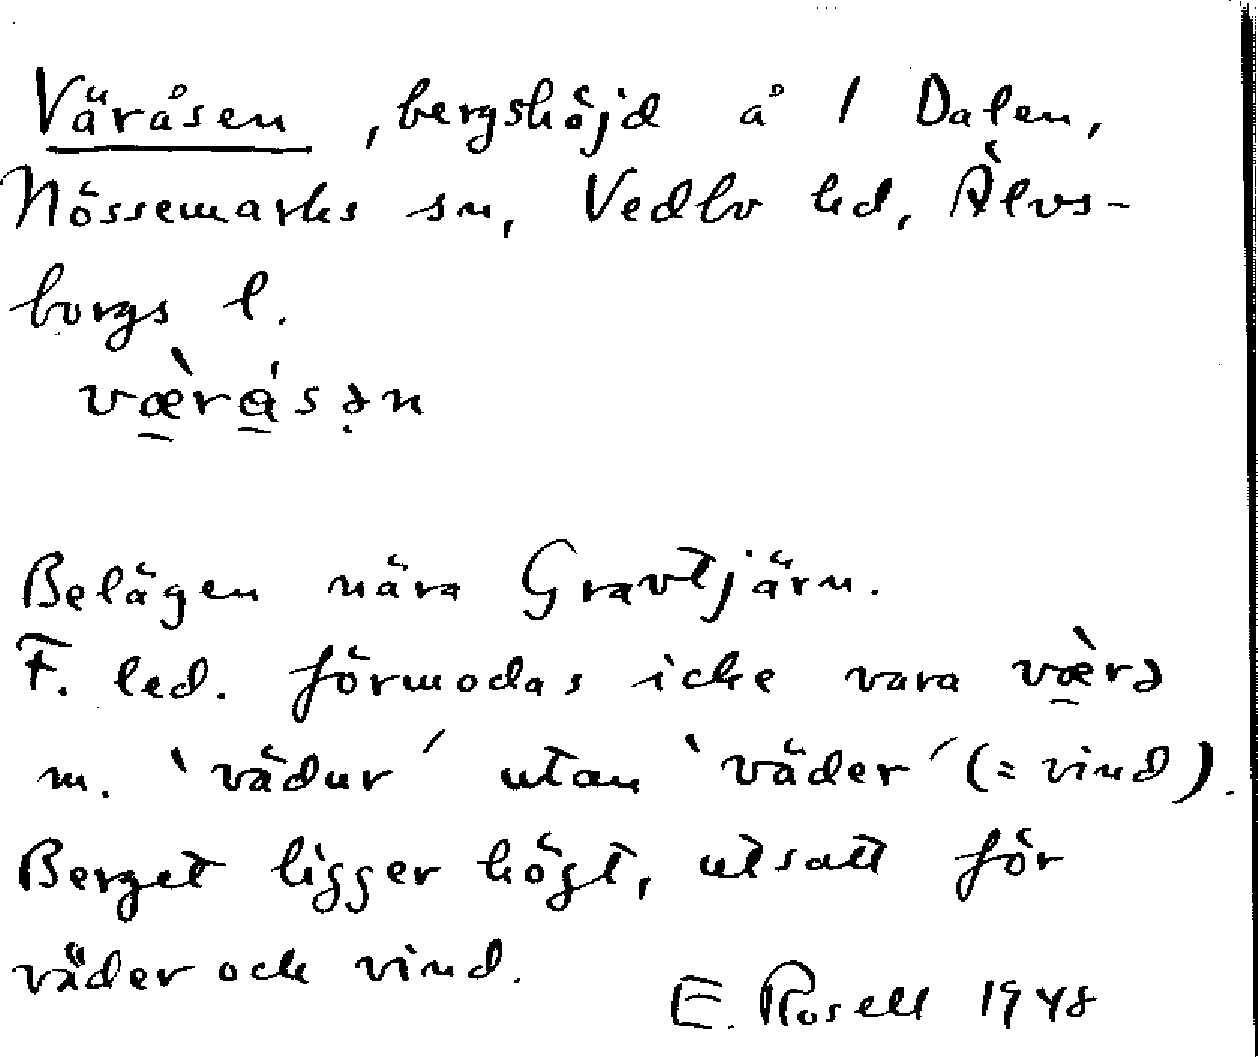 Väråsen, bergshöjd å 1 Dalen,
Nössemarks sn, Vedbo hd, Älvs-
borgs l.
væ̀rásən
Belägen nära Gravtjärn.
F. led. förmodas icke vara væ̀rə
m. 'vädur' utan 'väder' (= vind).
Berget ligger högt, utsatt för
väder och vind.
E. Rosell 1948